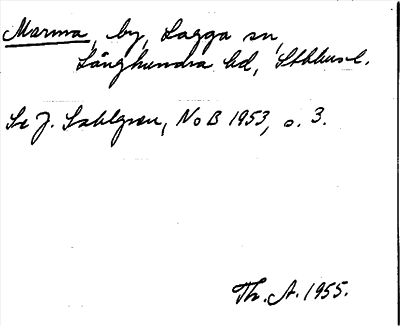 Marma, by, Lagga sn,
Långhundra hd, Sthlms l.
Se J. Sahlgren, NoB 1953, s. 3.
Th. A. 1955.